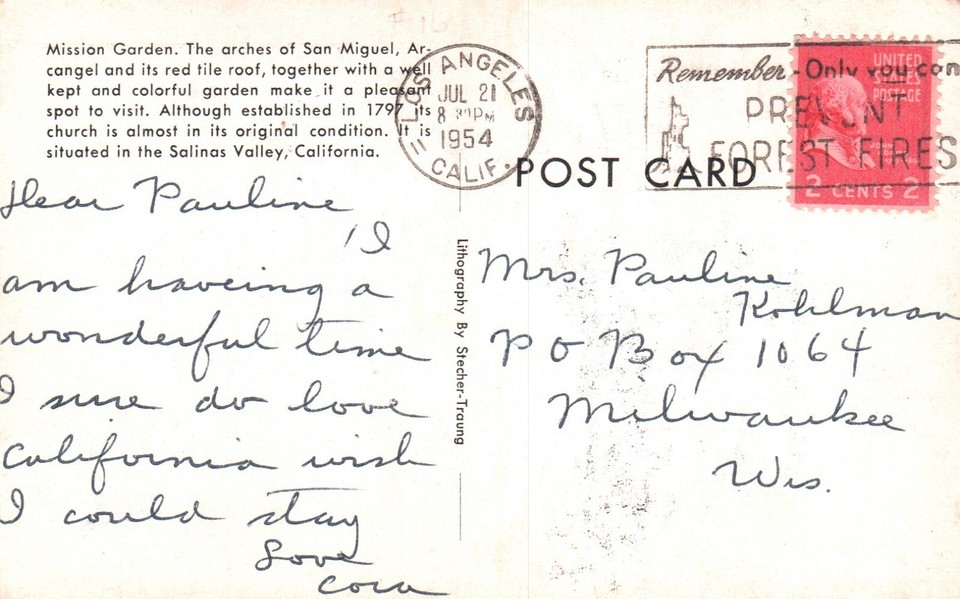 # 16
Mission Garden. The arches of San Miguel, Ar-
cangel and its red tile roof, together with a well
kept and colorful garden make it a pleasant
spot to visit. Although established in 1797 its
church is almost in its original condition. It is
situated in the Salinas Valley, California.
LOS ANGELES
JUL 21
PM
1954
CALIF.
Remember - Only you can
PREVENT
FOREST FIRES
UNITED
STATES
POSTAGE
2 CENTS 2
POST CARD
Dear Pauline
I
am haveing a
wonderful time
I sure do love
California wish
I could stay
Love
Cora
Lithography By Stecher-Traung
Mrs. Pauline
Kohlman
P O Box 1064
Milwaukee
Wis.